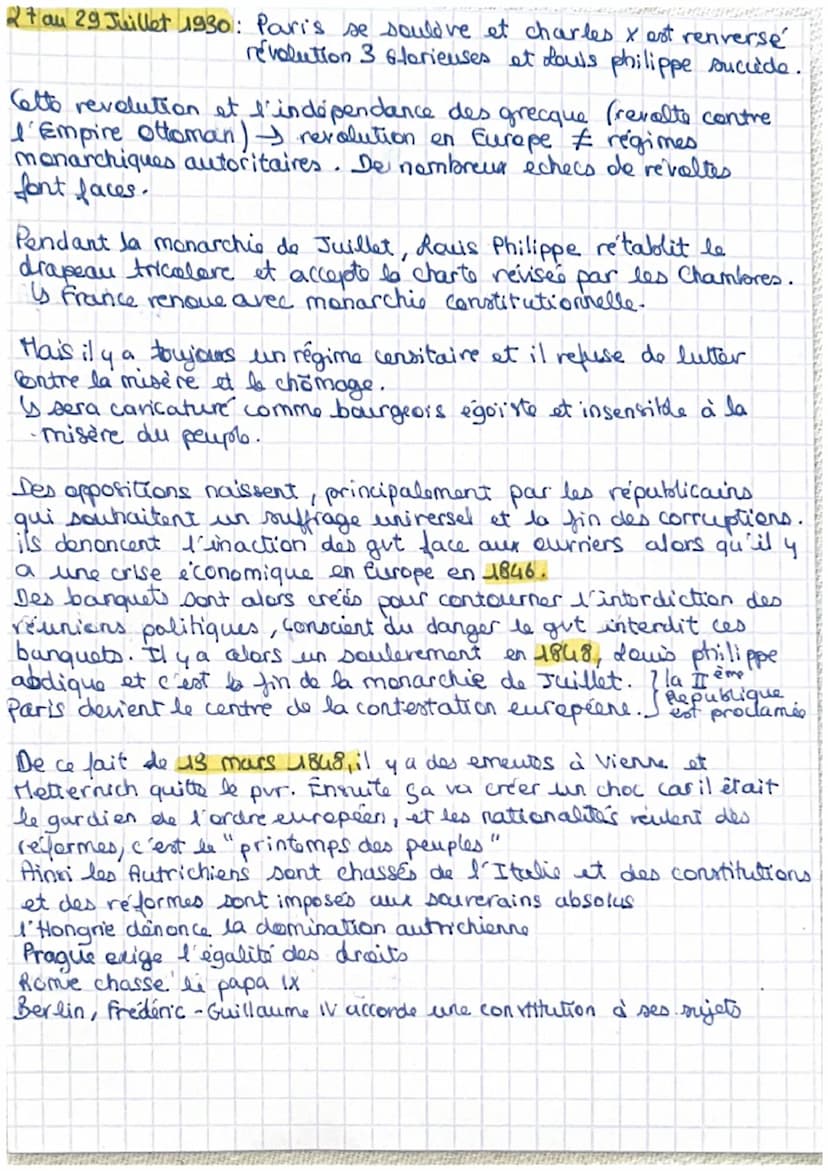 27 au 29 Juillet 1930 : Paris se soulève et charles X est renversé
révolution 3 Glorieuses et Louis philippe succède.
Cette revolution et l'indépendance des grecque (revolte contre
l'Empire Ottoman) → revolution en Europe ≠ régimes
monarchiques autoritaires. De nombreux echecs de révoltes
font faces.
Pendant la monarchie de Juillet, Louis Philippe rétablit le
drapeau tricolore et accepte la charte révisée par les Chambres.
↳ France renoue avec monarchie constitutionnelle.
Mais il y a toujours un régime censitaire et il refuse de lutter
contre la misère et le chômage.
↳ sera caricaturé comme bourgeois égoïste et insensible à la
misère du peuple.
Des oppositions naissent, principalement par les républicains
qui souhaitent un suffrage universel et la fin des corruptions.
ils denoncent l'inaction des gvt face aux ouvriers alors qu'il y
a une crise économique en Europe en 1846.
Des banquets sont alors créés pour contourner l'interdiction des
réunions politiques, conscient du danger le gvt interdit ces
banquets. Il y a alors un soulevement en 1848, Louis philippe
abdique et c'est la fin de la monarchie de Juillet. } la IIème
Paris devient le centre de la contestation européene. } République
est proclamée
De ce fait de 13 mars 1848, il y a des emeutes à Vienne et
Metternich quitte le pvr. Ensuite ça va créer un choc car il était
le gardien de l'ordre européen, et les nationalités veulent des
réformes, c'est le "printemps des peuples"
Ainsi les Autrichiens sont chassés de l'Italie et des constitutions
et des réformes sont imposés aux souverains absolus
l'Hongrie dénonce la domination autrichienne
Prague exige l'égalité des droits
Rome chasse le papa IX
Berlin, Frédéric-Guillaume IV accorde une constitution à ses sujets